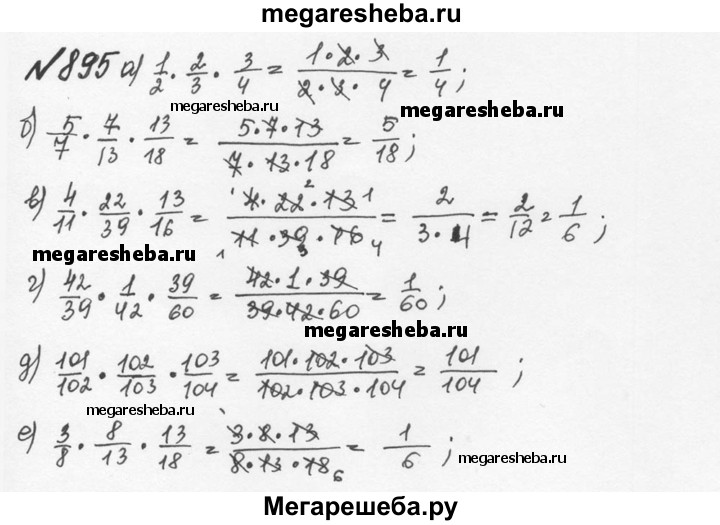 megaresheba.ru
№895 а) 1/2 · 2/3 · 3/4 = (1·2·3)/(2·3·4) = 1/4;
megaresheba.ru megaresheba.ru
б) 5/7 · 7/13 · 13/18 = (5·7·13)/(7·13·18) = 5/18;
в) 4/11 · 22/39 · 13/16 = (4·22·13)/(11·39·16) = 2/(3·4) = 2/12 = 1/6;
megaresheba.ru megaresheba.ru
г) 42/39 · 1/42 · 39/60 = (42·1·39)/(39·42·60) = 1/60;
megaresheba.ru
д) 101/102 · 102/103 · 103/104 = (101·102·103)/(102·103·104) = 101/104;
megaresheba.ru
е) 3/8 · 8/13 · 13/18 = (3·8·13)/(8·13·18) = 1/6;
megaresheba.ru
Мегарешеба.ру